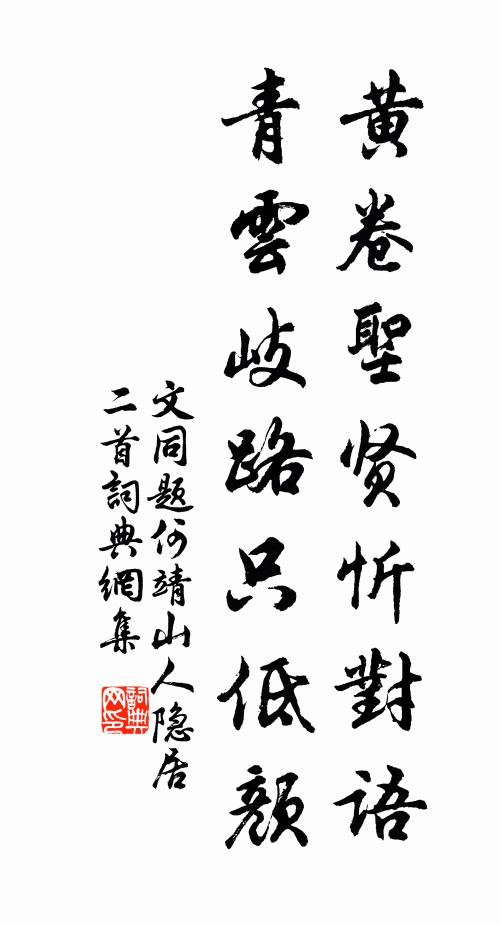 黄卷聖贤忻對語
青雲岐路只低顔
文同题何靖山人隐居
二首詞典網集
詞典网印